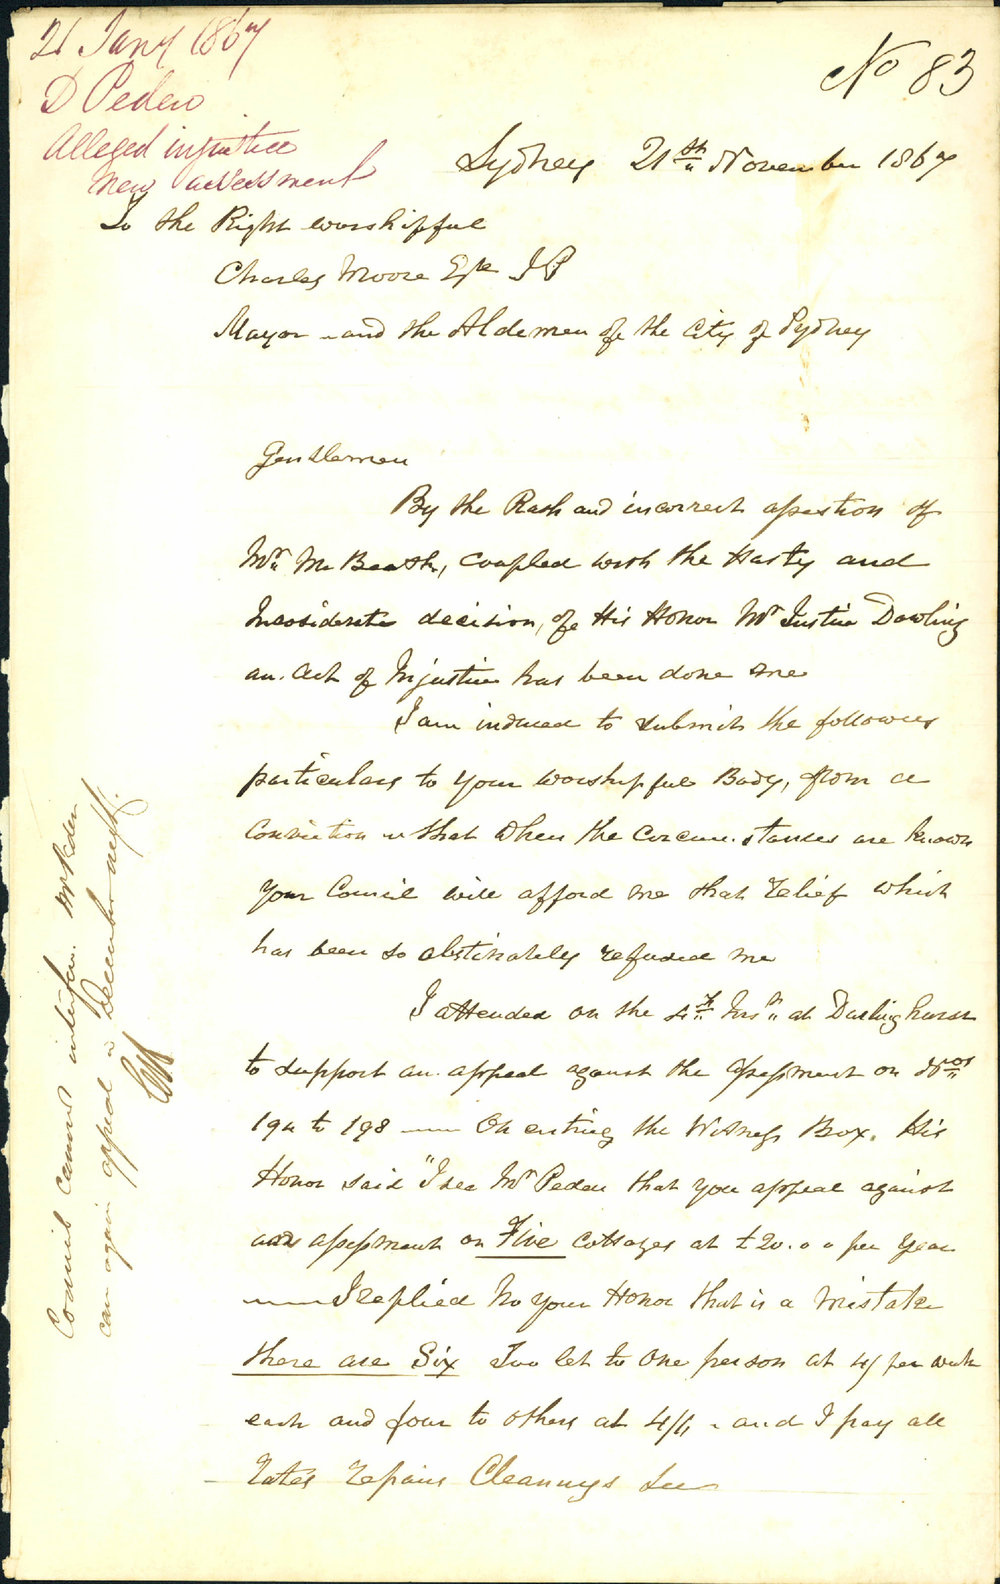 21 Jany 1867
D Peden
Alleged injustice
New assessment
No 83
Sydney 21st November 1867
To the Right worshipful
Charles Moore Esqr J P
Mayor and the Aldermen of the City of Sydney
Gentlemen
By the Rash and incorrect assertion of
Mr Mc Beath, coupled with the Hasty and
Inconsiderate decision, of His Honor Mr Justice Dowling
an Act of Injustice has been done me
I am induced to submit the following
particulars to your worshipful Body, from a
Conviction that when the Circumstances are known
your Council will afford me that relief which
has been so obstinately refused me
I attended on the 4th Inst at Darlinghurst
to support an appeal against the assessment on Nos
194 to 198 — On entring the Witness Box, His
Honor said "I see Mr Peden that you appeal against
an assessment on Five Cottages at £20.0.0 per Year
— I replied No your Honor that is a mistake
there are Six Two let to One person at 4/ per week
each and four to others at 4/6 - and I pay all
rates repairs Cleanings
Council cannot interfere. Mr Peden
can again appeal in December next.
CM